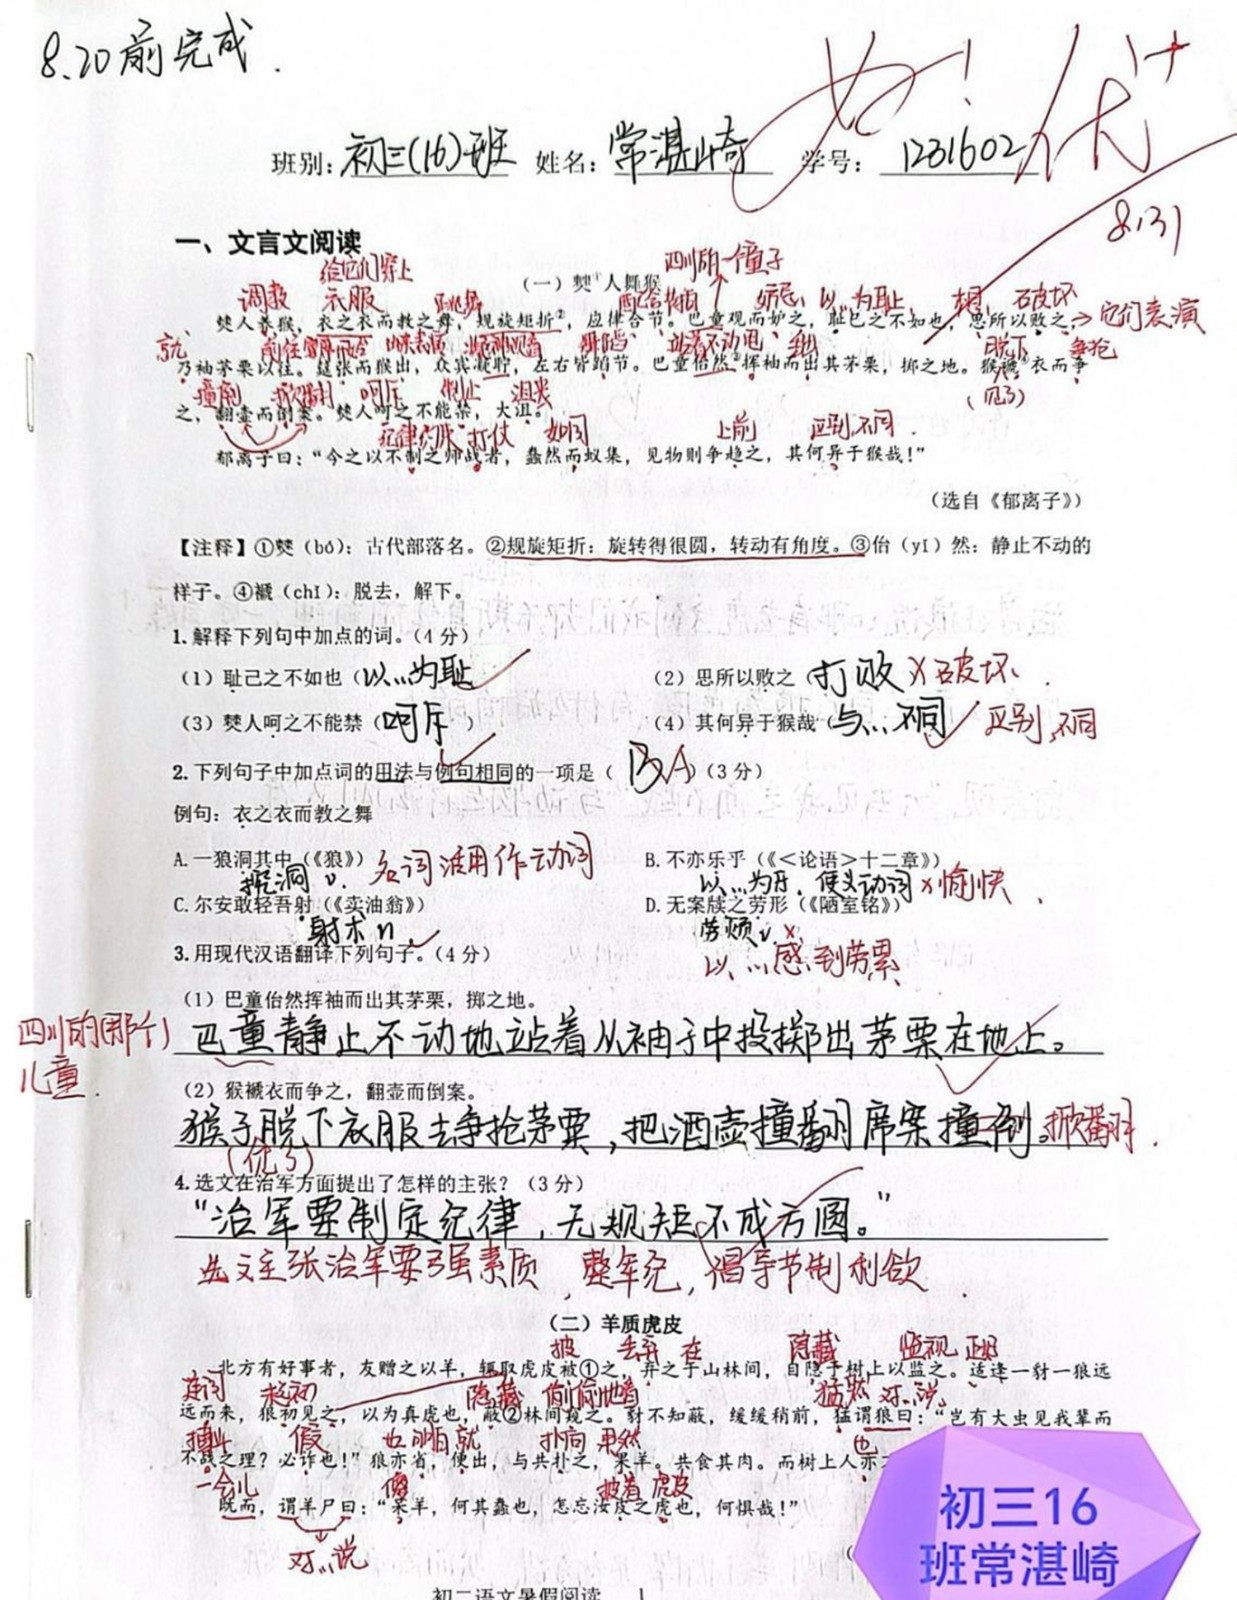 8.20前完成.
好! 优+
班别: 初三(16)班 姓名: 常湛崎 学号: 1231602
8.31
一、文言文阅读
给它们穿上 四川的一个童子
(一) 僰①人舞猴
调教 衣服 跳舞 配合 妒忌 以…为耻 想 破坏
僰人养猴,衣之衣而教之舞,规旋矩折②,应律合节。巴童观而妒之,耻己之不如也,思所以败之,→它们表演
就 站着不动 他 脱下 争抢
乃袖茅栗以往。筵张而猴出,众宾凝眝,左右皆蹈节。巴童佁然③挥袖而出其茅栗,掷之地。猴褫④衣而争
撞倒 掀翻 呵斥 制止 沮丧
之,翻壶而倒案。僰人呵之不能禁,大沮。
纪律约束 打仗 如同 上前 区别,不同.
郁离子曰:“今之以不制之师战者,蠢然而蚁集,见物则争趋之,其何异于猴哉!”
(选自《郁离子》)
【注释】①僰(bó):古代部落名。②规旋矩折:旋转得很圆,转动有角度。③佁(yǐ)然:静止不动的
样子。④褫(chǐ):脱去,解下。
1.解释下列句中加点的词。(4分)
(1)耻己之不如也(以…为耻 (2)思所以败之(打败 ×破坏.
(3)僰人呵之不能禁(呵斥) (4)其何异于猴哉(与…不同 区别,不同
2.下列句子中加点词的用法与例句相同的一项是( B A )(3分)
例句:衣之衣而教之舞
A.一狼洞其中(《狼》) 名词活用作动词 B.不亦乐乎(《<论语>十二章》)
挖洞 v. 以…为乐.使义动词 ×愉快.
C.尔安敢轻吾射(《卖油翁》) D.无案牍之劳形(《陋室铭》)
射术 n. 劳烦 v. ×
3.用现代汉语翻译下列句子。(4分) 以…感到劳累
(1)巴童佁然挥袖而出其茅栗,掷之地。
四川的(那个)儿童. 巴童静止不动地站着从袖子中投掷出茅栗在地上。
(2)猴褫衣而争之,翻壶而倒案。
猴子脱下衣服去争抢茅栗,把酒壶撞翻席案撞倒。掀翻.
4.选文在治军方面提出了怎样的主张?(3分)
“治军要制定纪律,无规矩不成方圆。”
选文主张治军要强素质,整军纪,倡导节制利欲.
(二)羊质虎皮
披 丢弃 在 隐藏 监视 正好
北方有好事者,友赠之以羊,辄取虎皮被①之,弃之于山林间,自隐于树上以监之。适逢一豺一狼远
起初 隐藏 偷偷地看 猛然 对…说.
远而来,狼初见之,以为真虎也,蔽②林间窥之。豺不知蔽,缓缓稍前,猛谓狼曰:“岂有大虫见我辈而
搏斗 假 也 就 扑向 果然
不战之理?必诈也!”狼亦省,便出,与共扑之,果羊。共食其肉。而树上人亦
一会儿 傻 披着 虎皮
既而,谓羊尸曰:“呆羊,何其蠢也,怎忘汝皮之虎也,何惧哉!”
对…说
初二语文暑假阅读 1
初三16
班常湛崎